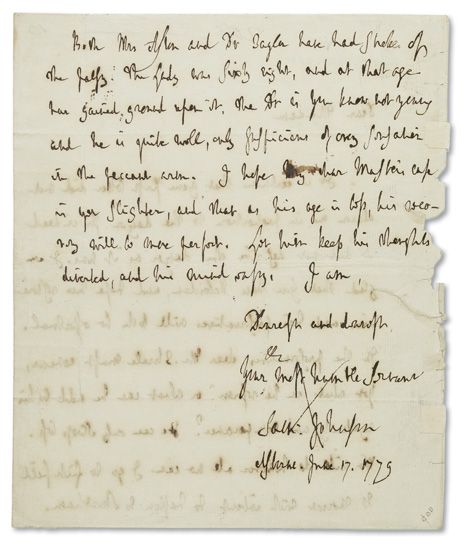 Both Mrs Aston and Dr Taylor have had strokes of
the palsy. The Lady was sixty eight, and at that age
has gained ground upon it. the Dr is you know not young
and he is quite well, only suspicious of every sensation
in the peccant arm. I hope my dear Masters case
is yet slighter, and that as his age is less, his reco-
very will be more perfect. Let him keep his thoughts
diverted, and his mind easy. I am,
Dearest and dearest
Your most humble Servant
Sam: Johnson
Ashbourne June 17. 1779